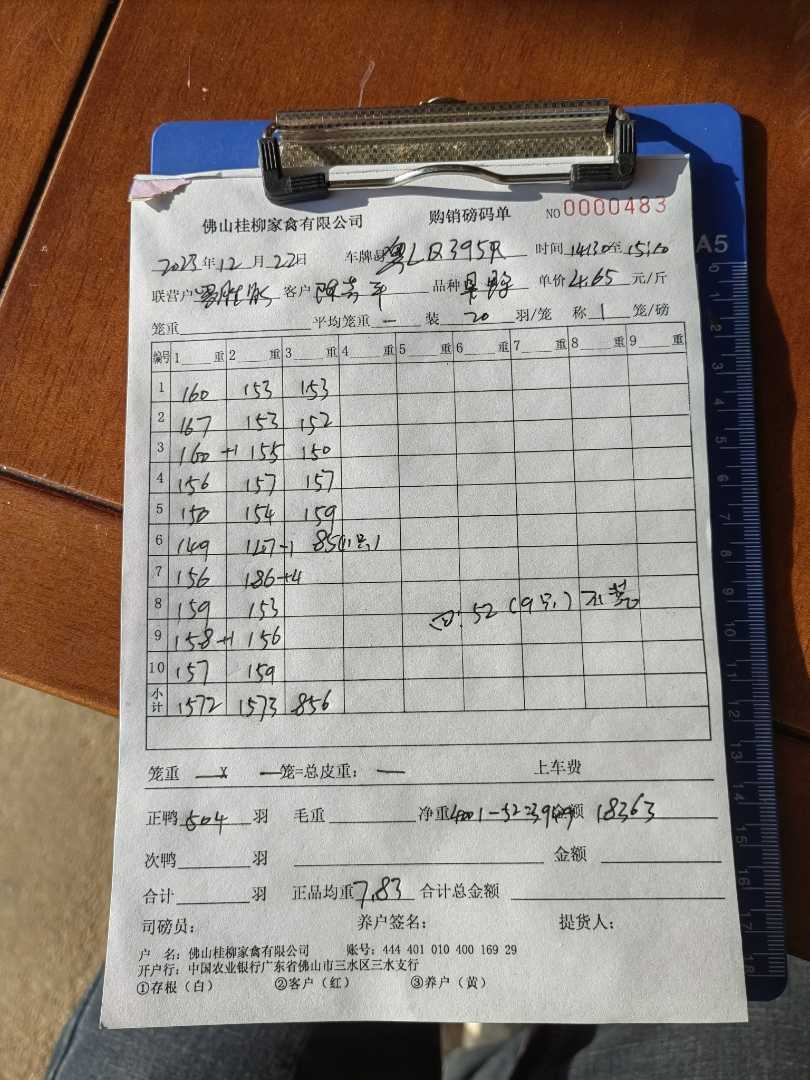 佛山桂柳家禽有限公司 购销磅码单 NO 0000483
2023年12月22日 车牌号 粤L 395R 时间 14:30至15:10
联营户 客户 品种 单价 4.65 元/斤
笼重 平均笼重 — 装 20 羽/笼 称 1 笼/磅
编号 1 重 2 重 3 重 4 重 5 重 6 重 7 重 8 重 9 重
1 160 153 153
2 167 153 152
3 160+1 155 150
4 156 157 157
5 150 154 159
6 149 147-1 85(11只)
7 156 186+4
8 159 153
回: 52 (9只)
9 158+1 156
10 157 159
小计 1572 1573 856
笼重 — X — 笼=总皮重: — 上车费
正鸭 504 羽 毛重 净重 4001-52=3949 金额 18363
次鸭 羽 金额
合计 羽 正品均重 7.83 合计总金额
司磅员: 养户签名: 提货人:
户 名: 佛山桂柳家禽有限公司 账号: 444 401 010 400 169 29
开户行: 中国农业银行广东省佛山市三水区三水支行
①存根(白) ②客户(红) ③养户(黄)
A5
0 1 2 3 4 5 6 7 8 9 10 11 12 13 14 15 16 17 18